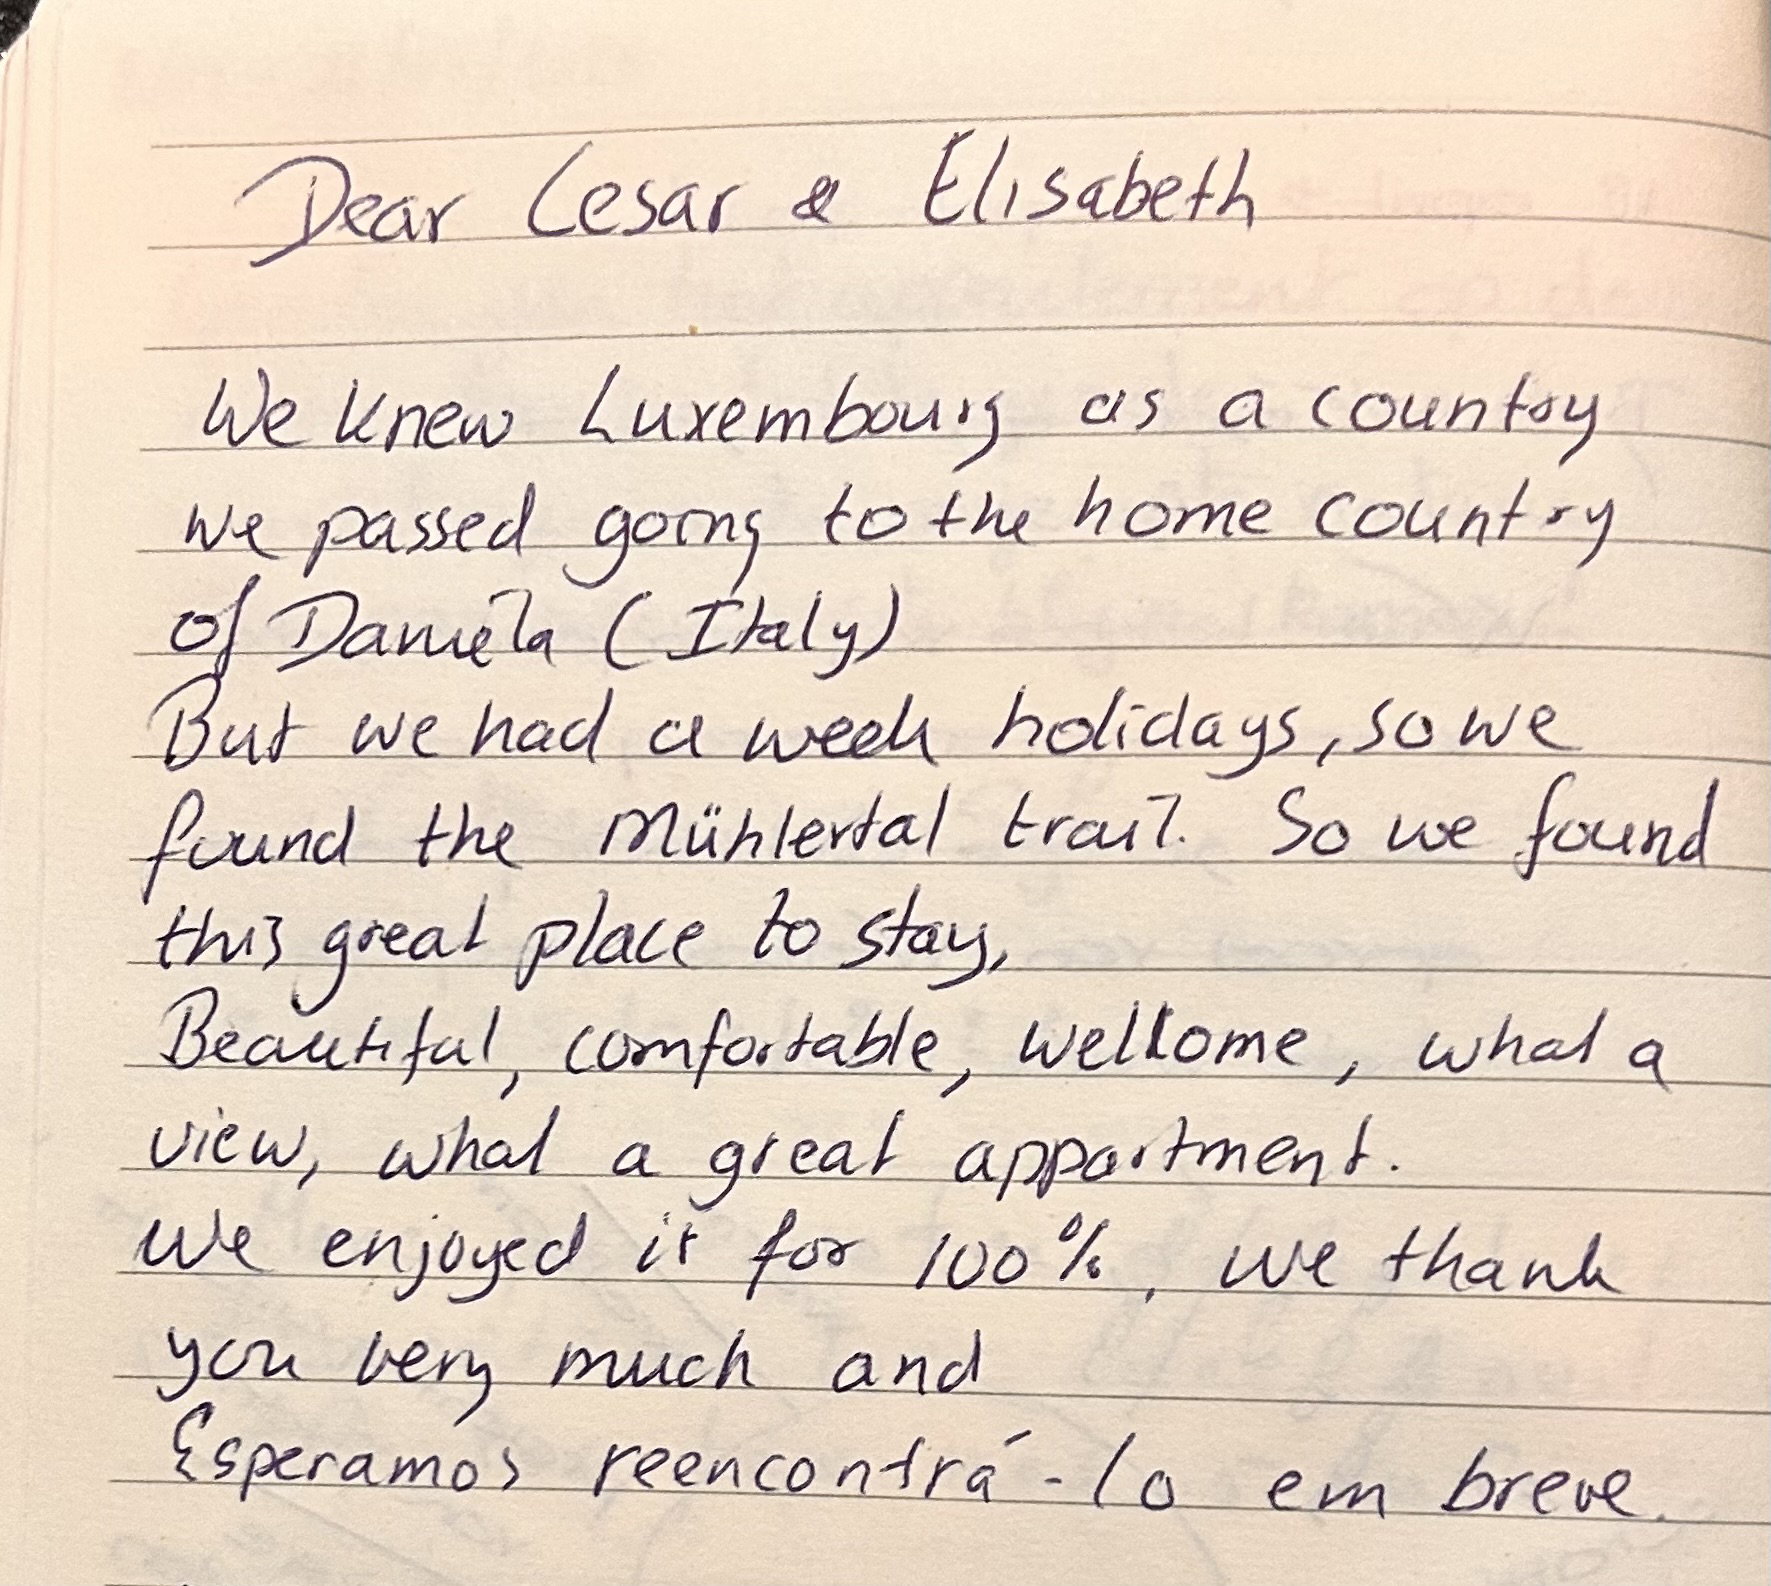 Dear Cesar & Elisabeth
We knew Luxembourg as a country
we passed going to the home country
of Daniela (Italy)
But we had a week holidays, so we
found the Mühlertal trail. So we found
this great place to stay,
Beautiful, comfortable, wellkome, what a
view, what a great appartment.
We enjoyed it for 100%, we thank
you very much and
Esperamos reencontrá-lo em breve.